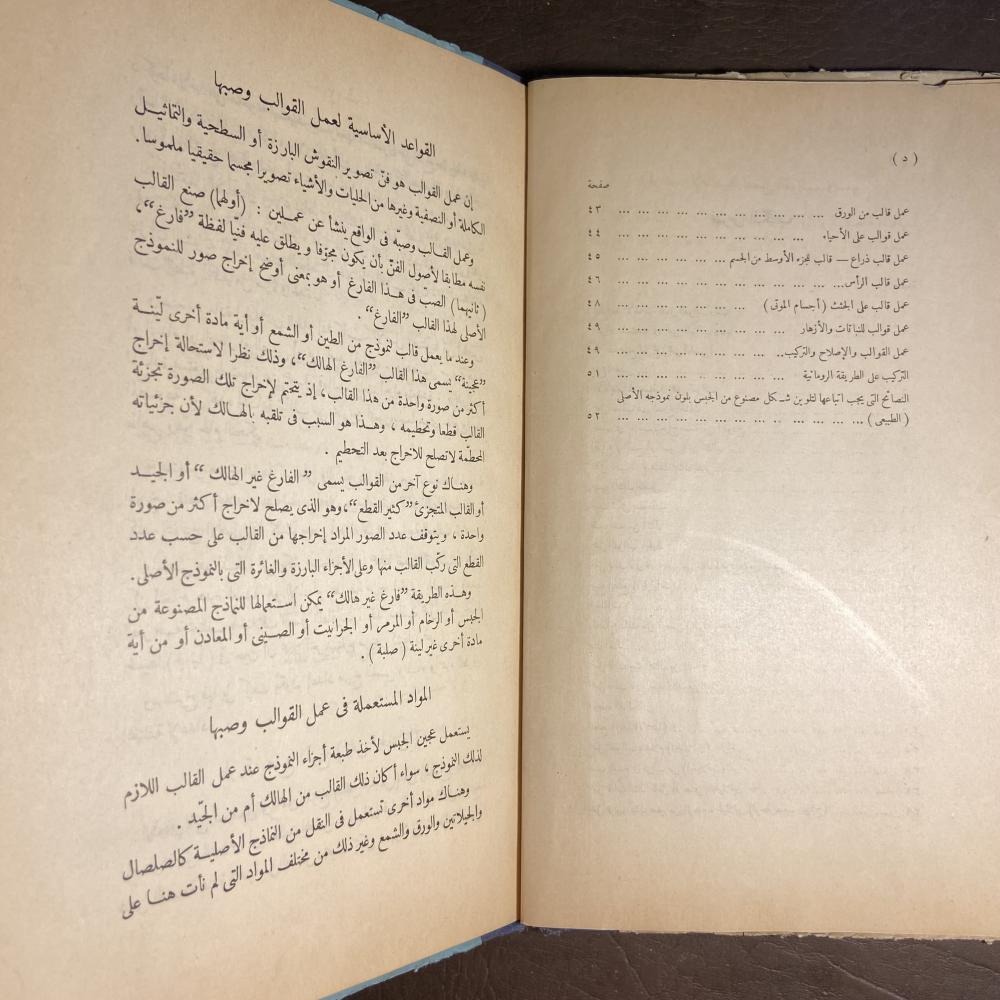 ( د )
صفحة
عمل قالب من الورق ... ... ... ... ... ... ... ... ... ... ... ٤٣
عمل قوالب على الأحياء ... ... ... ... ... ... ... ... ... ... ٤٤
عمل قالب ذراع — قالب للجزء الأوسط من الجسم ... ... ... ... ... ... ٤٥
عمل قالب الرأس... ... ... ... ... ... ... ... ... ... ... ... ٤٦
عمل قالب على الجثث ( أجسام الموتى ) ... ... ... ... ... ... ... ... ٤٨
عمل قوالب للنباتات والأزهار ... ... ... ... ... ... ... ... ... ٤٩
عمل القوالب والإصلاح والتركيب.. ... ... ... ... ... ... ... ... ٤٩
التركيب على الطريقة الرومانية ... ... ... ... ... ... ... ... ... ٥١
النصائح التى يجب اتباعها لتلوين شكل مصنوع من الجبس بلون نموذجه الأصلى
( الطبيعى ) ... ... ... ... ... ... ... ... ... ... ... ... ٥٢
القواعد الأساسية لعمل القوالب وصبها
إن عمل القوالب هو فنّ تصوير النقوش البارزة أو السطحية والتماثيل
الكاملة أو النصفية وغيرها من الحليات والأشياء تصويرا مجسما حقيقيا ملموسا .
وعمل القالب وصبّه فى الواقع ينشأ عن عملين : (أولها) صنع القالب
نفسه مطابقا لأصول الفنّ بأن يكون مجوّفا ويطلق عليه فنيّا لفظة ”فارغ“،
( ثانيهما ) الصبّ فى هذا الفارغ أو هو بمعنى أوضح إخراج صور للنموذج
الأصلى لهذا القالب ”الفارغ“ .
وعند ما يعمل قالب لنموذج من الطين أو الشمع أو أية مادة أخرى ليّنة
”عجينة“ يسمى هذا القالب ”الفارغ الهالك“، وذلك نظرا لاستحالة إخراج
أكثر من صورة واحدة من هذا القالب، إذ يتحتم لإخراج تلك الصورة تجزئة
القالب قطعا وتحطيمه ، وهذا هو السبب فى تلقبه بالهالك لأن جزئياته
المحطّمة لاتصلح للاخراج بعد التحطيم .
وهناك نوع آخر من القوالب يسمى ” الفارغ غير الهالك “ أو الجيد
أو القالب المتجزئ ”كثير القطع“، وهو الذى يصلح لاخراج أكثر من صورة
واحدة ، ويتوقف عدد الصور المراد إخراجها من القالب على حسب عدد
القطع التى ركّب القالب منها وعلى الأجزاء البارزة والغائرة التى بالنموذج الأصلى.
وهذه الطريقة ”فارغ غير هالك“ يمكن استعمالها للنماذج المصنوعة من
الجبس أو الرخام أو المرمر أو الجرانيت أو الصينى أو المعادن أو من أية
مادة أخرى غير لينة ( صلبة ) .
المواد المستعملة فى عمل القوالب وصبها
يستعمل عجين الجبس لأخذ طبعة أجزاء النموذج عند عمل القالب اللازم
لذلك النموذج ، سواء أكان ذلك القالب من الهالك أم من الجيّد .
وهناك مواد أخرى تستعمل فى النقل من النماذج الأصلية كالصلصال
والجيلاتين والورق والشمع وغير ذلك من مختلف المواد التى لم نأت هنا على